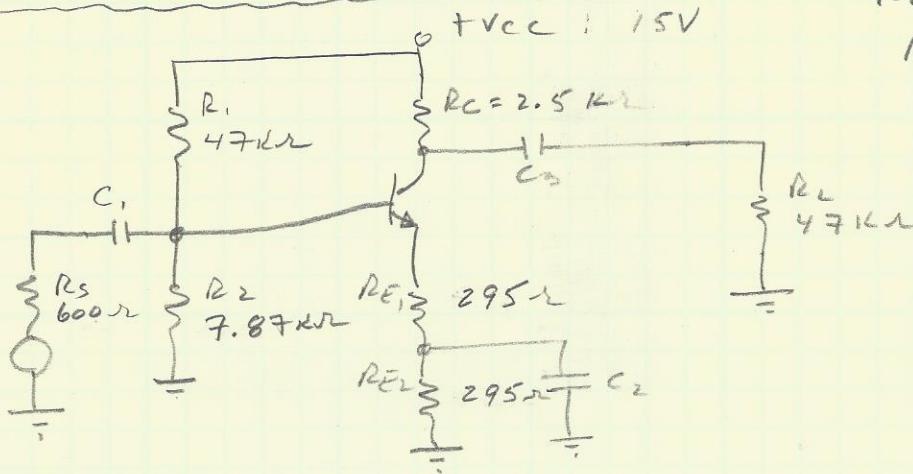 +VCC : 15V
R1
47KΩ
RC = 2.5 KΩ
C3
RL
47KΩ
C1
RS
600Ω
R2
7.87KΩ
RE1 295Ω
RE2 295Ω
C2